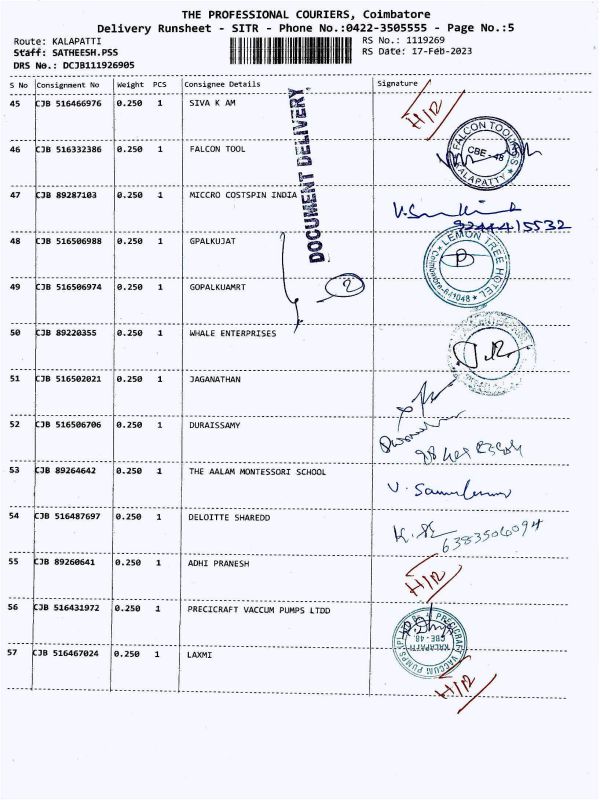 THE PROFESSIONAL COURIERS, Coimbatore
Delivery Runsheet - SITR - Phone No.:0422-3505555 - Page No.:5
Route: KALAPATTI RS No.: 1119269
Staff: SATHEESH.PSS RS Date: 17-Feb-2023
DRS No.: DCJB111926905
S No Consignment No Weight PCS Consignee Details Signature
45 CJB 516466976 0.250 1 SIVA K AM H/R
46 CJB 516332386 0.250 1 FALCON TOOL
FALCON TOOLINGS
CBE - 48
KALAPATTY
DOCUMENT DELIVERY
47 CJB 89287103 0.250 1 MICCRO COSTSPIN INDIA
9244415532
48 CJB 516506988 0.250 1 GPALKUJAT
LEMON TREE HOTEL
Coimbatore-641048
49 CJB 516506974 0.250 1 GOPALKUAMRT 2
50 CJB 89220355 0.250 1 WHALE ENTERPRISES
51 CJB 516502021 0.250 1 JAGANATHAN
52 CJB 516506706 0.250 1 DURAISSAMY
53 CJB 89264642 0.250 1 THE AALAM MONTESSORI SCHOOL
54 CJB 516487697 0.250 1 DELOITTE SHAREDD
6383506094
55 CJB 89260641 0.250 1 ADHI PRANESH H/R
56 CJB 516431972 0.250 1 PRECICRAFT VACCUM PUMPS LTDD
PRECICRAFT VACCUM PUMPS
KALAPATTI
CBE - 48
57 CJB 516467024 0.250 1 LAXMI H/R